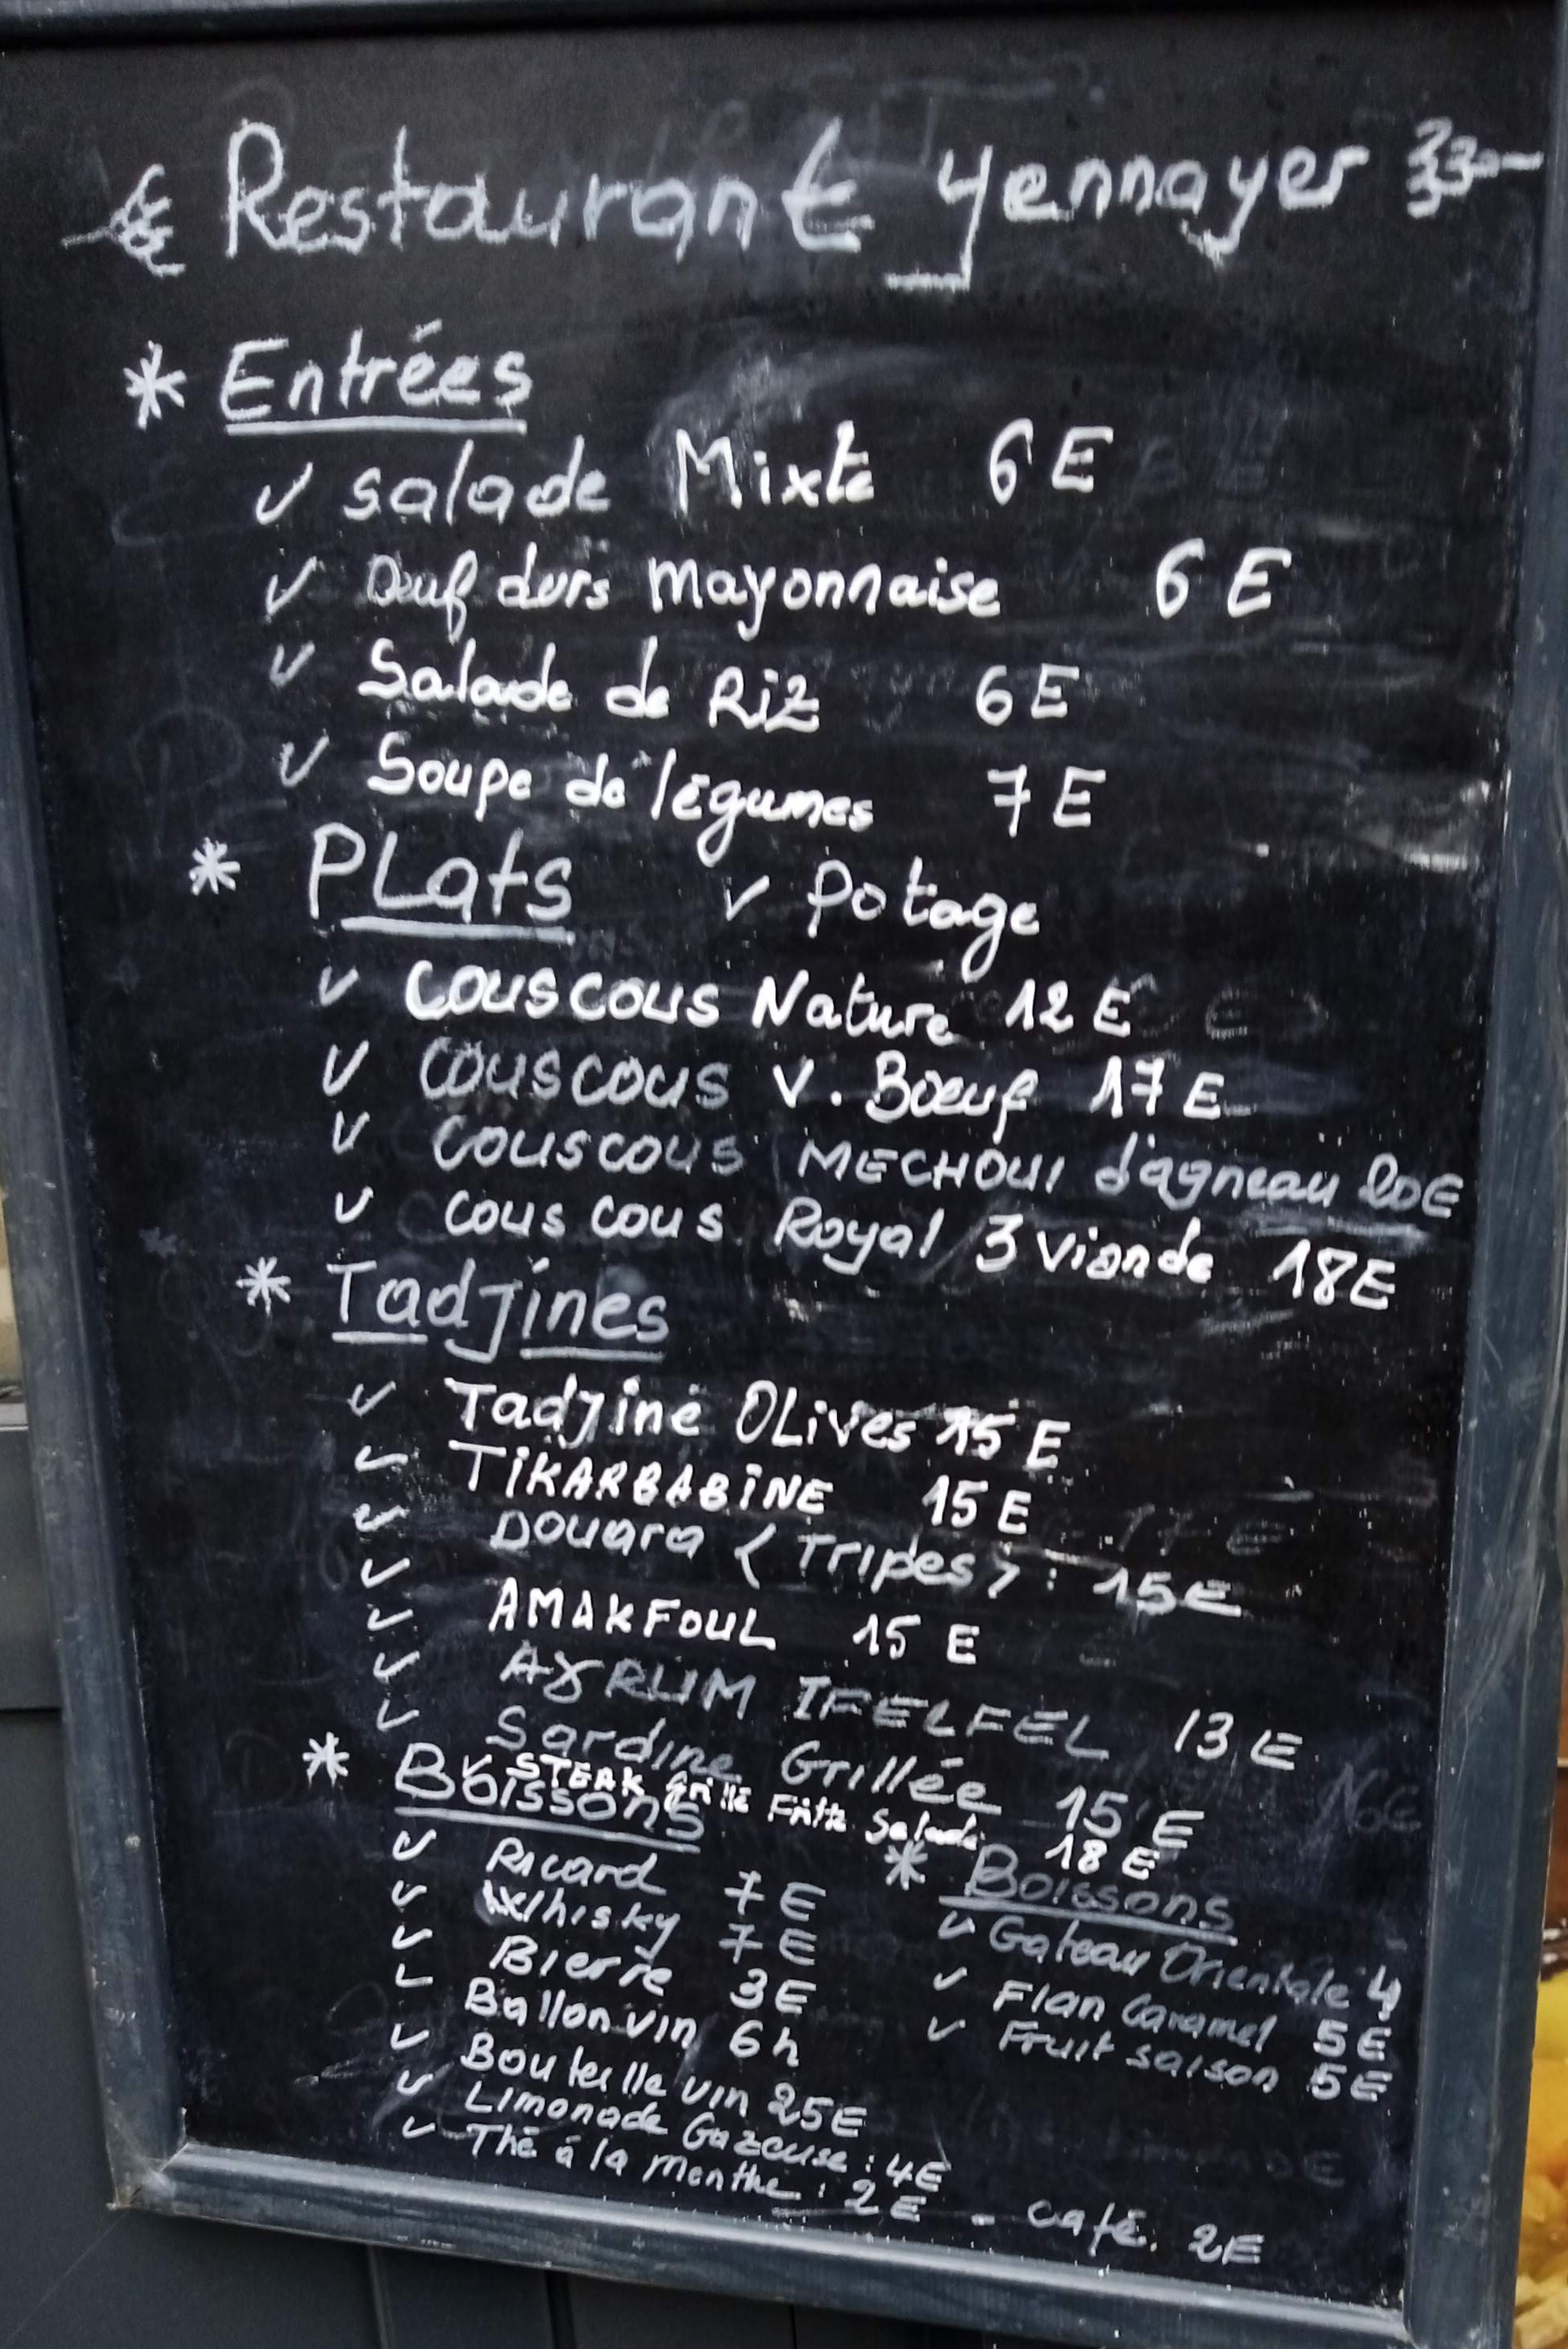 Restaurant Yennayer
* Entrées
✓ Salade Mixte 6E
✓ Oeuf durs mayonnaise 6E
✓ Salade de Riz 6E
✓ Soupe de légumes 7E
* PLats ✓ Potage
✓ Couscous Nature 12E
✓ Couscous V. Boeuf 17E
✓ Couscous MECHOUI d'agneau 20E
✓ Couscous Royal 3 viande 18E
* Tadjines
✓ Tadjine OLives 15E
✓ TiKARBABiNE 15E
✓ Douara (Tripes) : 15E
✓ AMAKFOUL 15E
✓ AƔRUM IFELFEL 13E
✓ Sardine Grillée 15E
✓ STEAK Grillé Frite Salade 18E
* Boissons
✓ Ricard 7E
✓ Whisky 7E
✓ Bierre 3E
✓ Ballon vin 6h
✓ Bouteille vin 25E
✓ Limonade Gazeuse : 4E
✓ Thé à la menthe : 2E - café. 2E
* Boissons
✓ Gateau Orientale 4
✓ Flan Caramel 5E
✓ Fruit saison 5E